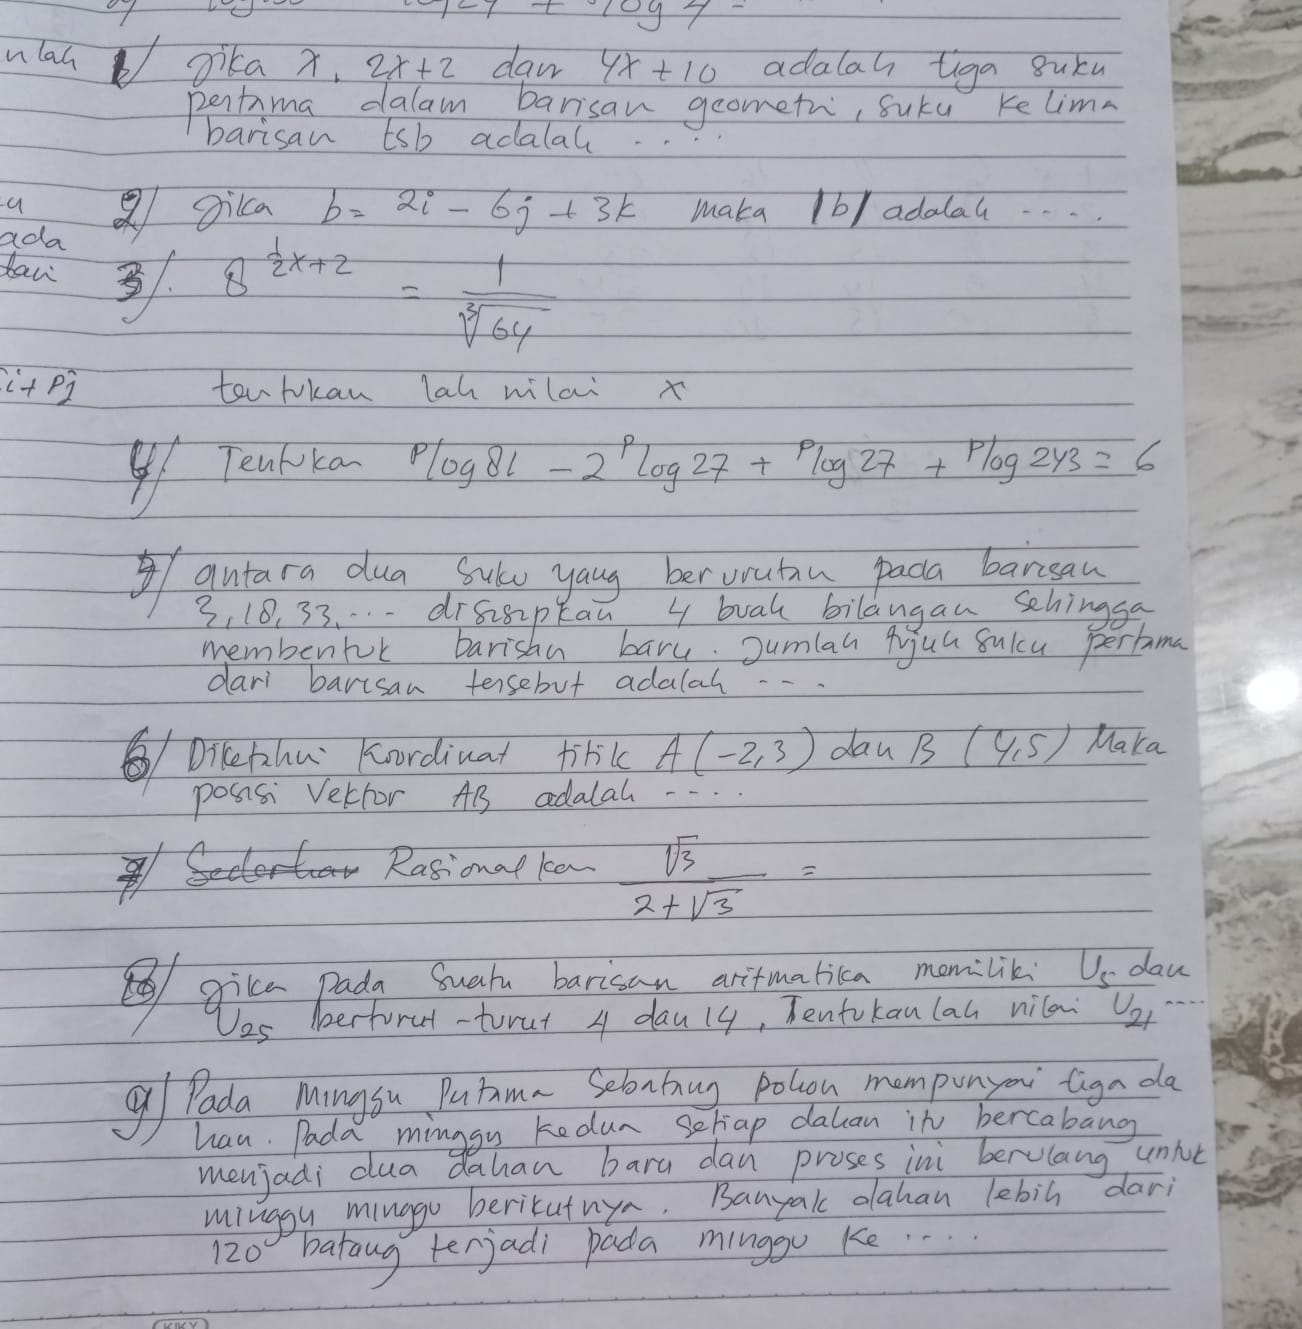 log 4 =
nlah 1/ Jika x, 2x+2 dan 4x+10 adalah tiga suku
pertama dalam barisan geometri, suku ke lima
barisan tsb adalah ....
2/ Jika b = 2i - 6j + 3k maka |b| adalah ....
ada
dari 3/. 8^(1/2x+2) = 1/∛64
i + Pj tentukan lah nilai x
4/ Tentukan ᴾlog 81 - 2 ᴾlog 27 + ᴾlog 27 + ᴾlog 243 = 6
5/ antara dua suku yang berurutan pada barisan
3, 18, 33, ... disisipkan 4 buah bilangan sehingga
membentuk barisan baru. Jumlah tujuh suku pertama
dari barisan tersebut adalah ....
6/ Diketahui koordinat titik A (-2,3) dan B (4,5) Maka
posisi Vektor AB adalah ....
7/ Rasionalkan √3/(2+√3) =
8/ Jika pada suatu barisan aritmatika memiliki U5 dan
U25 berturut-turut 4 dan 14, Tentukan lah nilai U21 ....
9/ Pada minggu Putama Sebatang pohon mempunyai tiga da
han. Pada minggu kedua setiap dahan itu bercabang
menjadi dua dahan baru dan proses ini berulang untuk
minggu minggu berikutnya. Banyak dahan lebih dari
120 batang terjadi pada minggu ke ....
KIKY